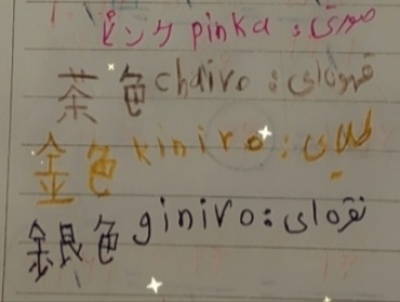 ピンケ pinka : صورتی
茶色 chairo : قهوه‌ای
金色 kiniro : طلایی
銀色 giniro : نقره‌ای